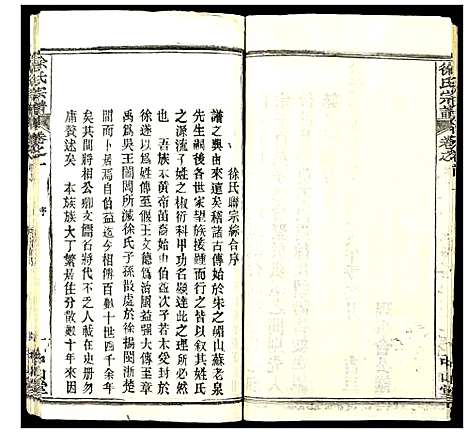 徐氏宗譜
卷之首
中山堂
徐氏聯宗綜合序
譜之興由來遠矣稽諸古傳始于朱之嵋山蘇老泉
先生嗣後各世家望族接踵而行之皆以叙其姓氏
之源流子姓之椒衍科甲功名顯達此之理所必然
也 吾族本黃帝苗裔始于伯益若木受封于
徐遂以為姓傳至偃王文德為治周益强大傳至章
禹為吳王闔閭所滅徐氏子孫散處於徐揚閩浙楚
間而居自伯益迄今相傳百數十世四千余年
矣其間名卿文儒石將代不乏人載在史册勿
庸贅述矣 本族族大丁繁居住分散觀十年來因
徐氏宗譜
卷之一
序
一
中山堂